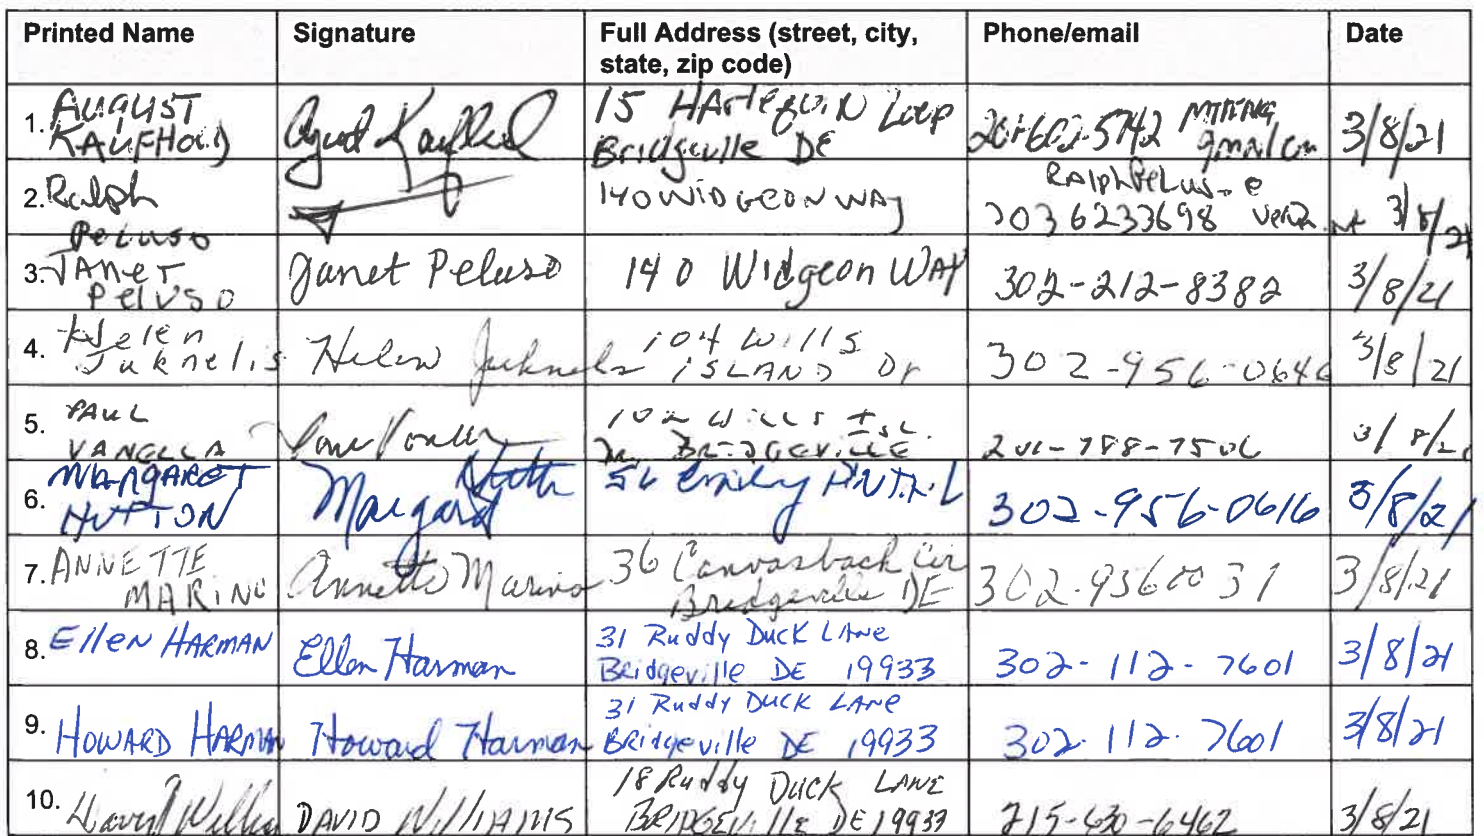 Printed Name Signature Full Address (street, city, state, zip code) Phone/email Date
1. AUGUST KAUFHOLD 15 HArleQuiN Loop Bridgeville DE 3/8/21
2. Ralph Peluso 140 WIDGEON WAy 7036233698 3/8/21
3. JANET PelUSO Janet Peluso 140 Widgeon WAY 302-212-8382 3/8/21
4. Helen Juknelis Helen Juknelis 104 Wills ISLAND Dr 302-956-0646 3/8/21
5. PAUL VANELLA 102 WILLS ISL. Dr BRIDGEVILLE 201-788-7506 3/8/21
6. MARGARET HUTTON Margaret Hutton 56 Emily 302-956-0616 3/8/21
7. ANNETTE MARINO Annette Marino 36 Canvasback Cir Bridgeville DE 302.9560031 3/8/21
8. Ellen HARMAN Ellen Harman 31 Ruddy Duck LAne Bridgeville DE 19933 302-112-7601 3/8/21
9. HOWARD HARMAN Howard Harman 31 Ruddy Duck LAne Bridgeville DE 19933 302-112-7601 3/8/21
10. David Williams DAVID WILLIAMS 18 Ruddy Duck LANE BRIDGEVIlle DE 19933 215-630-6462 3/8/21